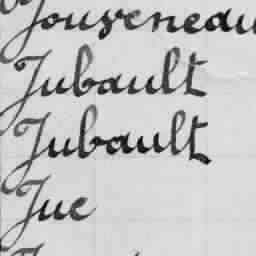 Jouveneau
Jubault
Jubault
Jue